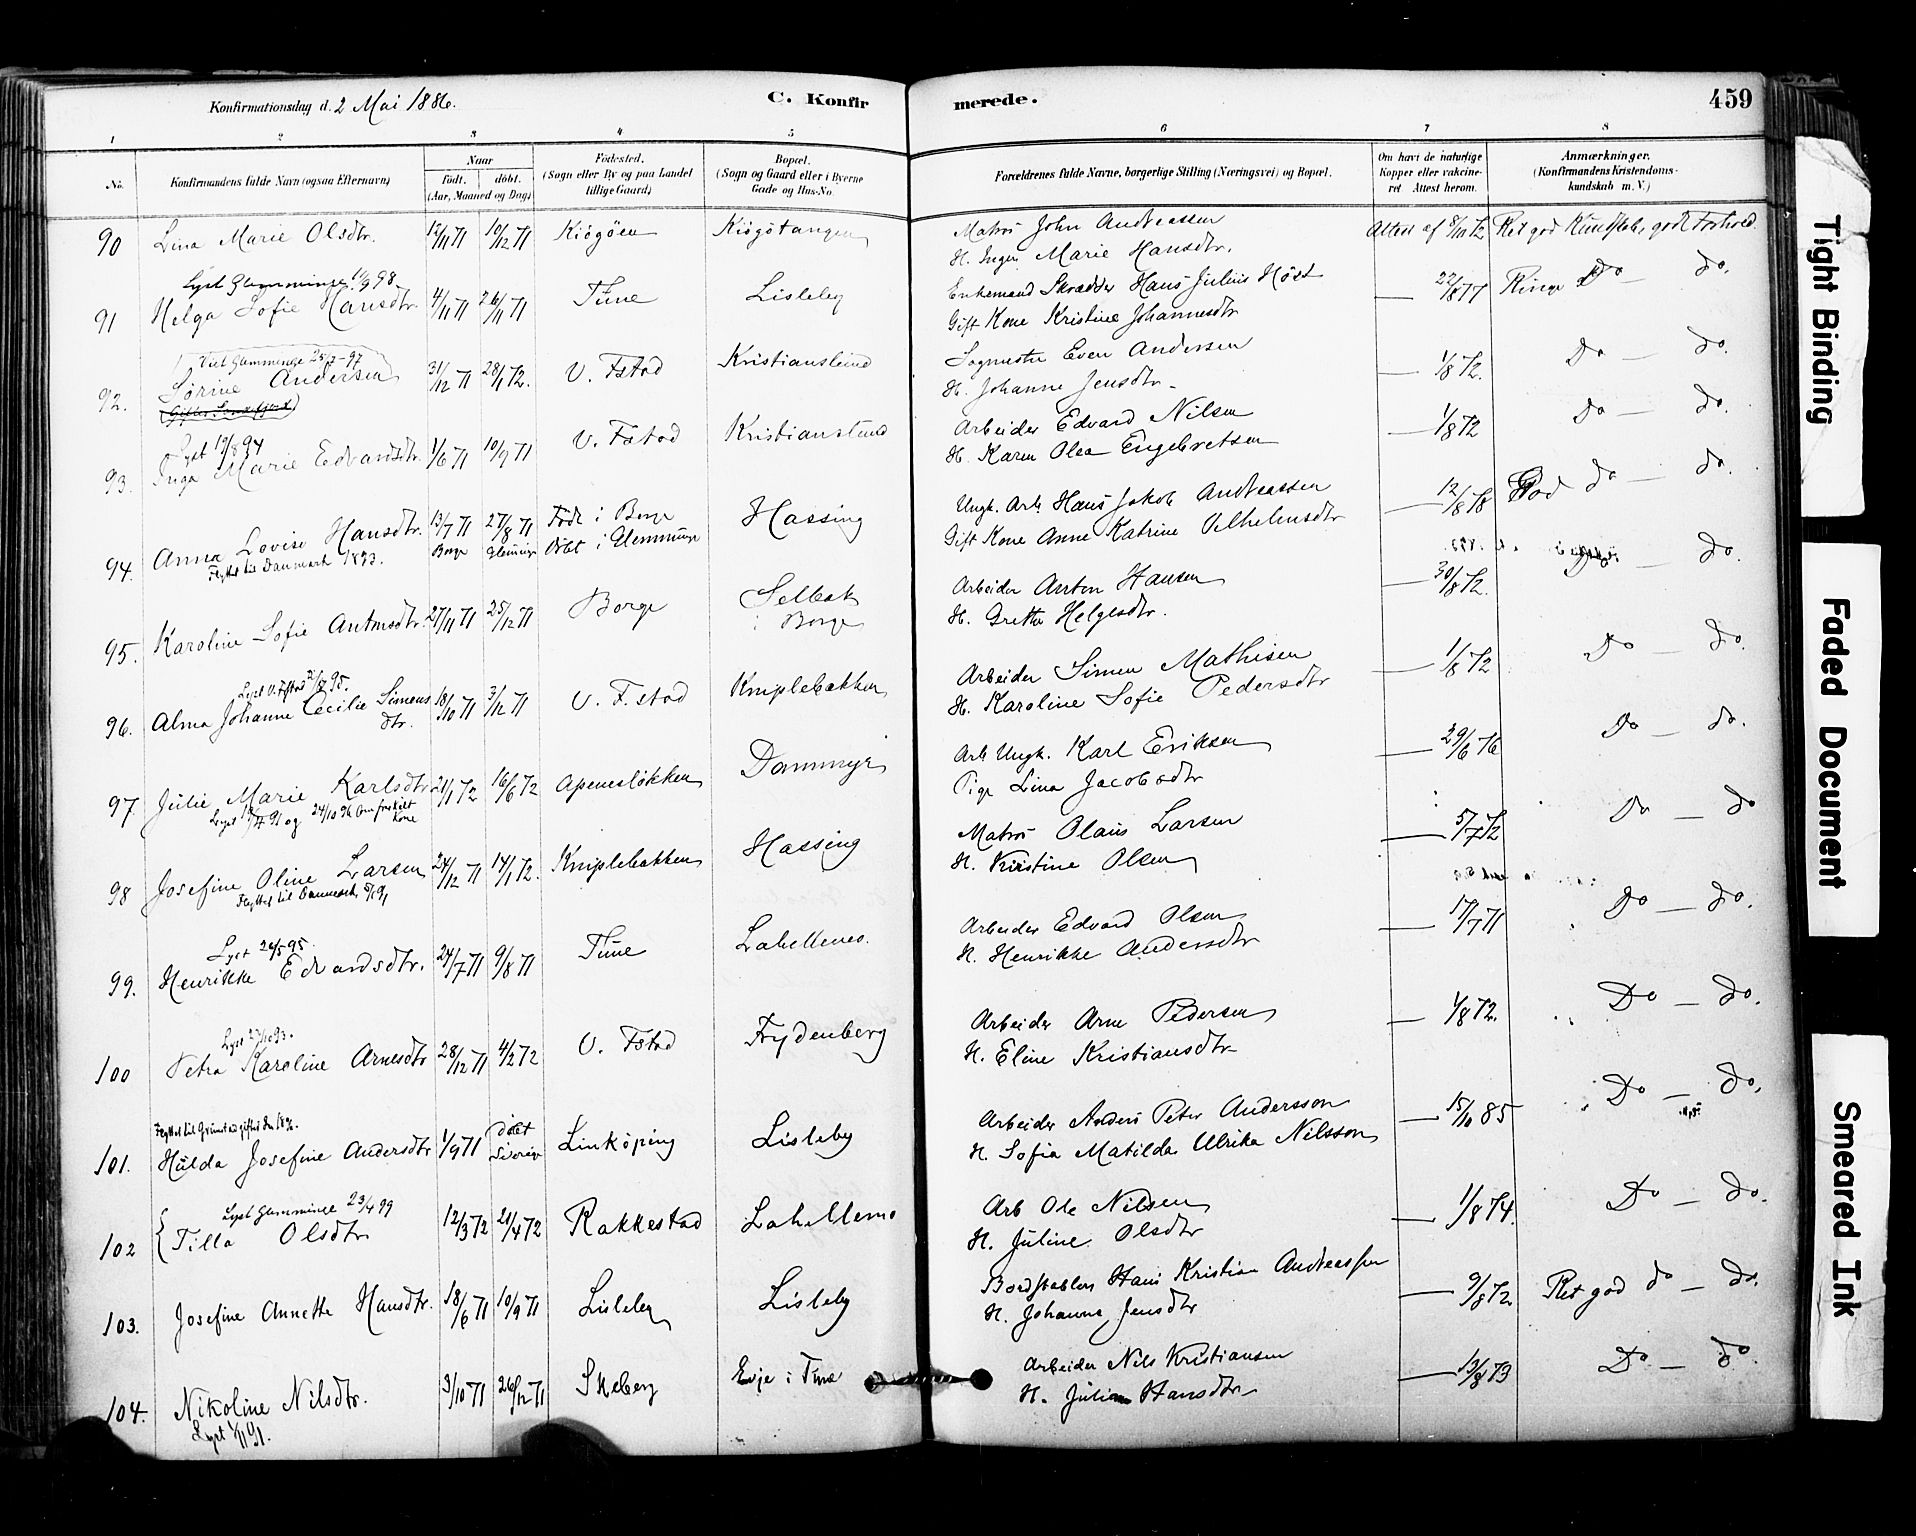 Konfirmationsdag d. 2 Mai 1886.
C. Konfirmerede.
459
1 2 3 4 5 6 7 8
No.
Konfirmandens fulde Navn (ogsaa Efternavn)
Naar
Födt. döbt.
(Aar, Maaned og Dag)
Födested.
(Sogn eller By og paa Landet
tillige Gaard)
Bopæl.
(Sogn og Gaard eller i Byerne
Gade og Hus-No.
Forældrenes fulde Navne, borgerlige Stilling (Næringsvei) og Bopæl.
Om havt de naturlige
Kopper eller vakcine-
ret Attest herom.
Anmærkninger.
(Konfirmandens Kristendoms-
kundskab m. V.)
90 Lina Marie Olsdtr. 12/11 71 10/12 71 Kiögöen Kiögötangen Matros John Andreassen Attest af 8/10 72 Ret god Kundskab, godt Forhold.
H. Inger Marie Hansdtr.
Lyst Glemminge 11/9 98.
91 Helga Sofie Hansdtr. 4/11 71 26/11 71 Tune Lisleby Enkemand Skrædder Hans Julius Höst — 22/8 77 Do — do.
Gift Kone Kristine Johannesdtr
Viet Glemminge 25/7-97
92. Sørine Andersen 31/12 71 28/1 72. V. Fstad Kristianslund Sagmester Even Andersen — 1/8 72. Do — do.
H. Johanne Jensdtr.
Lyst 19/8 94
93. Inga Marie Edvardsdtr. 1/6 71 10/9 71 V. Fstad Kristianslund Arbeider Edvard Nilsen — 1/8 72 Do — do.
H. Karen Olea Engebretsen
94. Anna Lovise Hansdtr. 13/7 71 27/8 71 Födt i Borge Hassing Ungk. Arb. Hans Jakob Andreassen — 12/8 78 God do — do.
Flyttet til Danmark 1893. Borge Glemminge Döbt i Glemminge Gift Kone Anne Katrine Vilhelmsdtr
95. Karoline Sofie Antonsdtr. 27/11 71 25/12 71 Borge Selbak i Borge Arbeider Anton Hansen — 30/8 72. Do — do.
H. Grethe Helgesdtr.
Lyst V. Fstad 21/8 95.
96. Alma Johanne Cecilie Simensdtr. 18/10 71 3/12 71 V. F.stad Kniplebakken Arbeider Simen Mathisen — 1/8 72 Do — do.
H. Karoline Sofie Pedersdtr
97. Julie Marie Karlsdtr. 21/1 72 16/6 72 Apenesløkken Dammyr Arb. Ungk. Karl Eriksen — 29/6 76 Do — do.
Pige Lina Jacobsdtr
98 Josefine Oline Larsen 24/12 71 14/1 72. Kniplebakken Hassing Matros Olaus Larsen — 5/7 72 Do — do
Flyttet til Danmark H. Kristine Olsen
Lyst 26/5 95.
99. Henrikke Edvardsdtr. 24/7 71 9/8 71 Tune Lahellemo. Arbeider Edvard Olsen — 17/7 71 Do — do.
H. Henrikke Andersdtr
Lyst 27/10 93.
100 Petra Karoline Arnesdtr 28/12 71 4/2 72 V. Fstad Frydenberg Arbeider Arne Pedersen — 1/8 72. Do — do.
H. Eline Kristiansdtr
101. Hulda Josefine Andersdtr 1/9 71 döbt Sverige Linköping Lisleby Arbeider Anders Peter Andersson — 15/10 85 Do — do.
H. Sofia Matilda Ulrika Nilsson
Lyst Glemminge 23/4 99
102 Tilla Olsdtr 12/3 72 21/4 72 Rakkestad Lahellemo Arb Ole Nilsen — 1/8 74. Do — do.
H. Juline Olsdtr
103. Josefine Annette Hansdtr. 18/6 71 10/9 71 Lisleby Lisleby Bordstabler Hans Kristian Andreassen — 9/8 72 Ret god do — do.
H. Johanne Jensdtr
104. Nikoline Nilsdtr. 3/10 71 26/12 71 Skeberg Evje i Tune Arbeider Nils Kristiansen — 13/8 73 Do — do
Lyst 1/11 91. H. Juline Hansdtr
Tight Binding
Faded Document
Smeared Ink